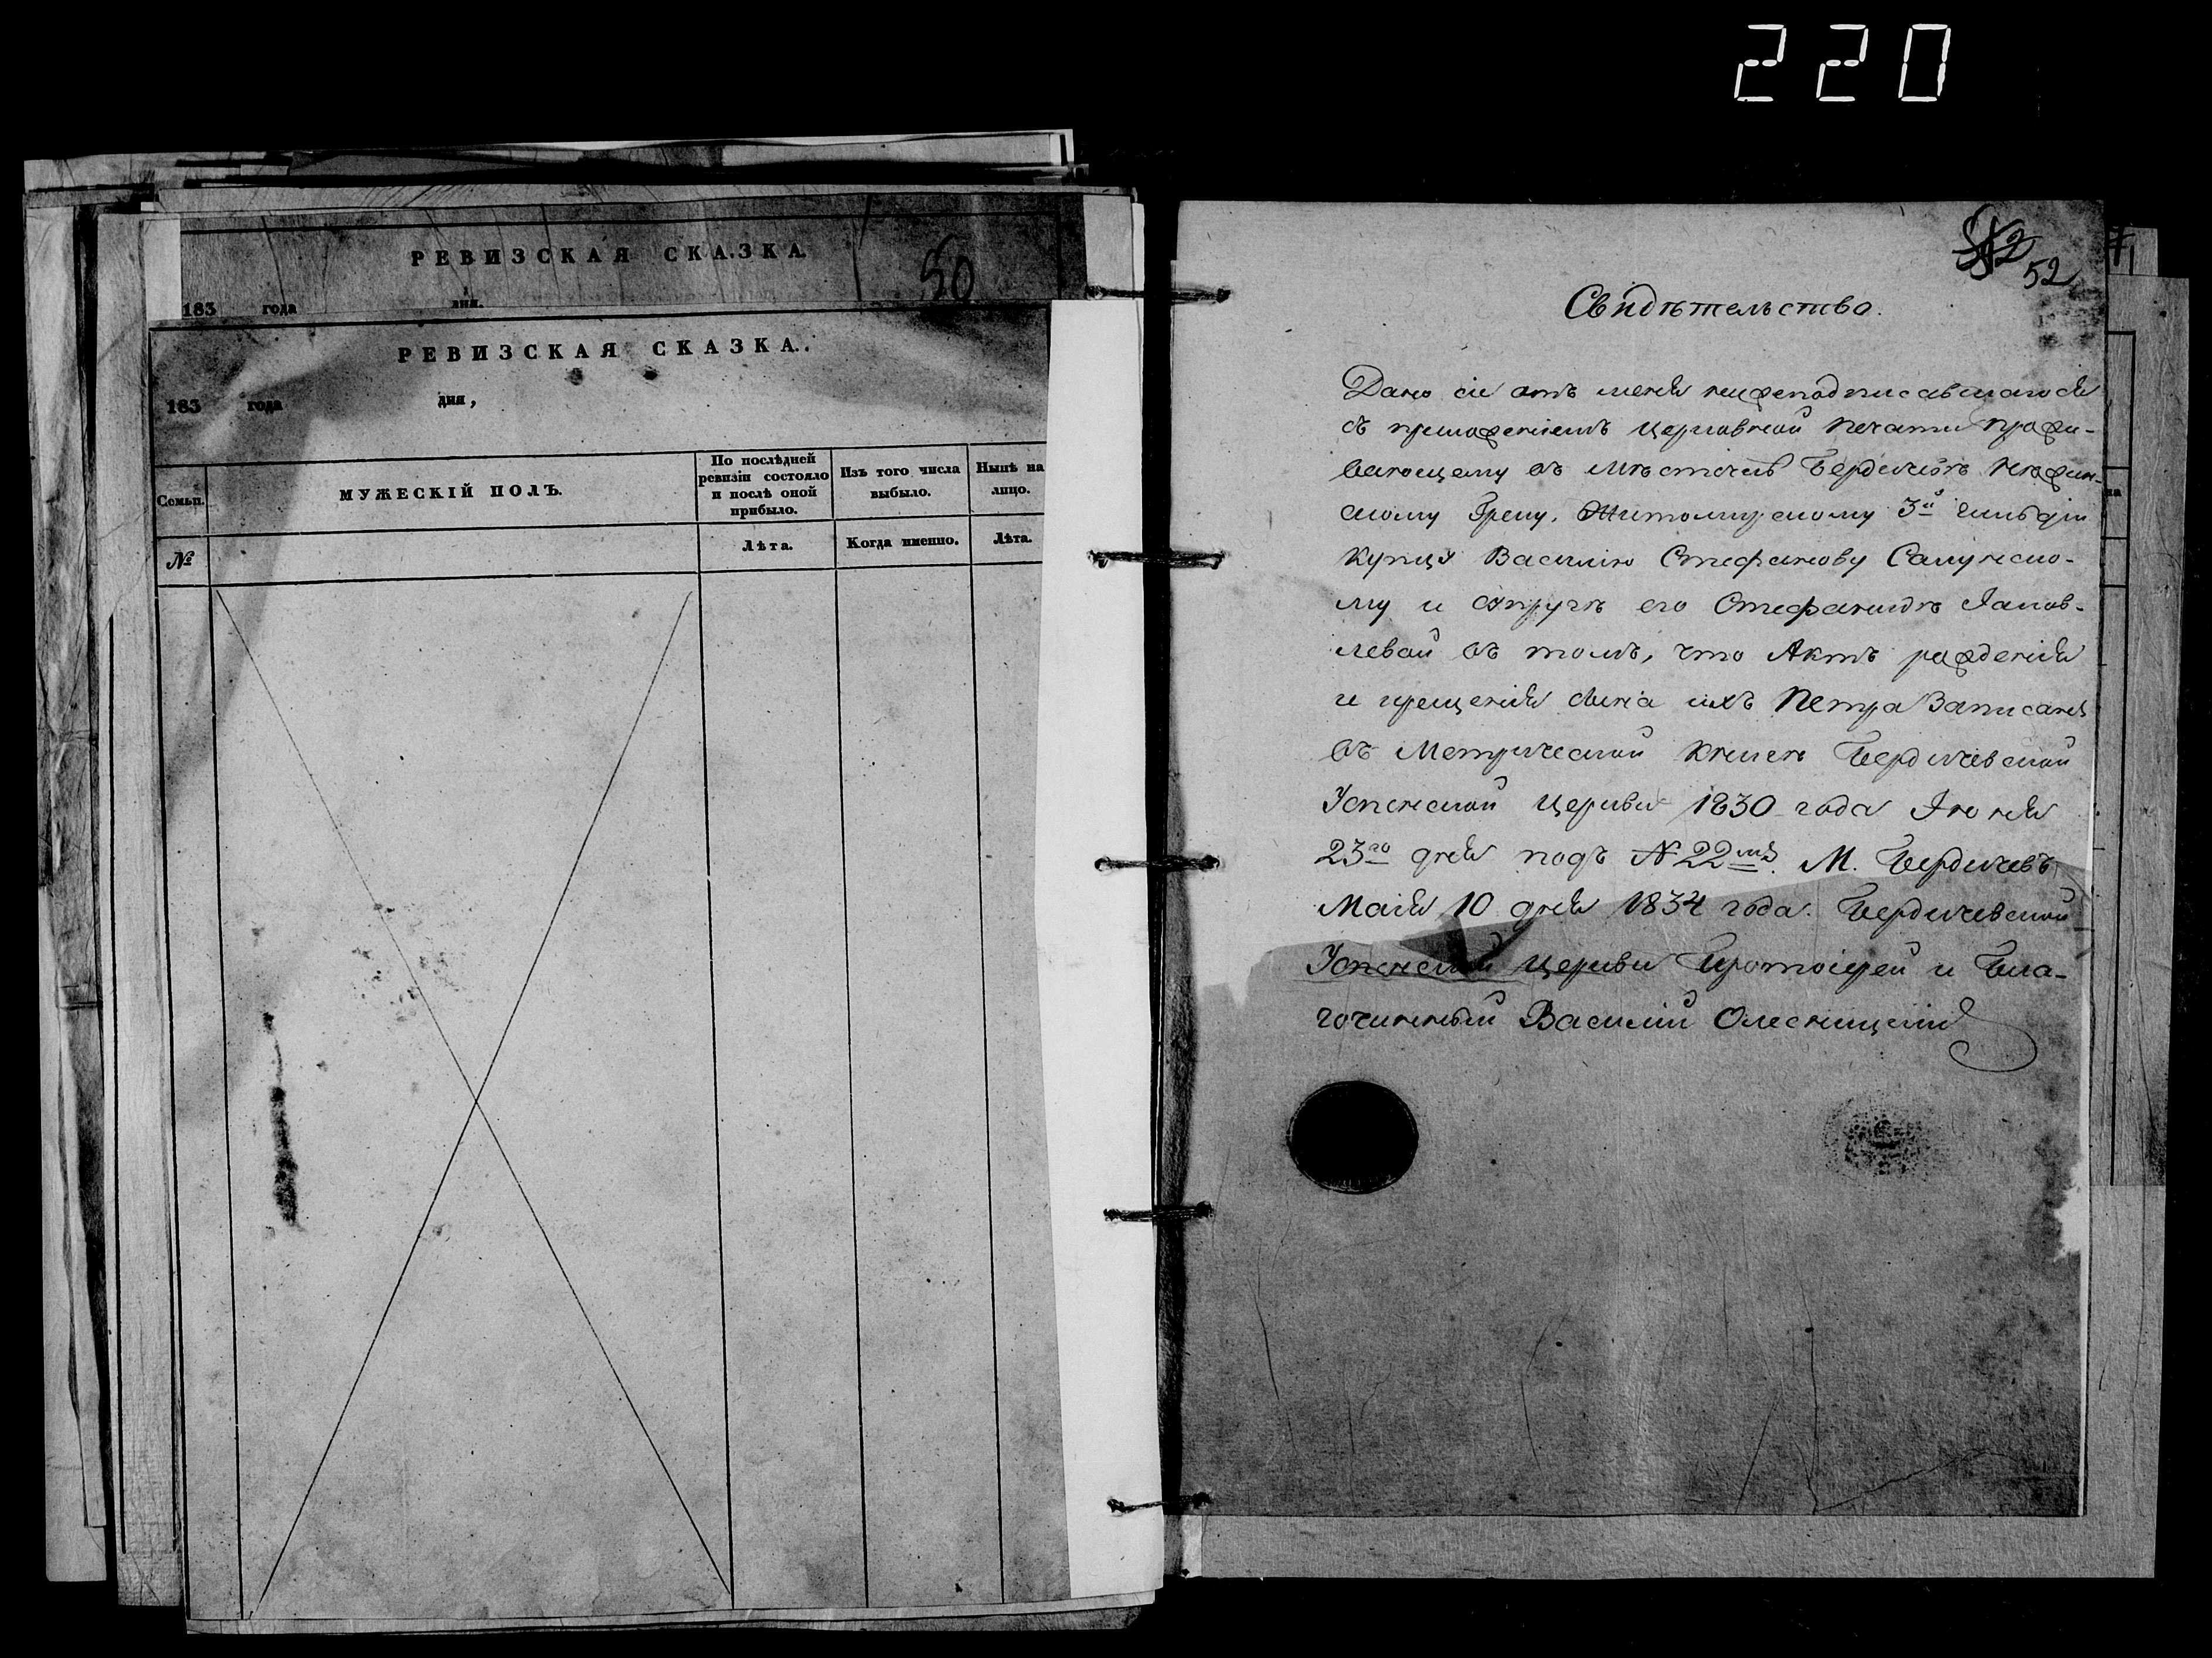 220
РЕВИЗСКАЯ СКАЗКА
50
183 года дня.
РЕВИЗСКАЯ СКАЗКА.
183 года дня,
Семьи.
МУЖЕСКІЙ ПОЛЪ.
По послѣдней ревизіи состояло и послѣ оной прибыло.
Изъ того числа выбыло.
Нынѣ на лицо.
№
Лѣта.
Когда именно.
Лѣта.
52
Свидѣтельство.
Дано сіе отъ меня нижеподписавшагося
съ приложеніемъ церковной печати прожи-
вающему въ мѣстечкѣ Бердичевѣ Нѣжин-
скому Греку, Житомирскому 3й гильдіи
купцу Василію Стефанову
му и супругѣ его Стефанидѣ Іаков-
левой въ томъ, что Актъ рожденія
и крещенія сына ихъ Петра записанъ
въ Метрической книгѣ Бердичевской
Успенской церкви 1830 года Іюня
23го дня подъ №22мъ. М. Бердичевъ
Маія 10 дня 1834 года. Бердичевской
Успенской церкви Протоіерей и Бла-
гочинный Василій Олесницкій